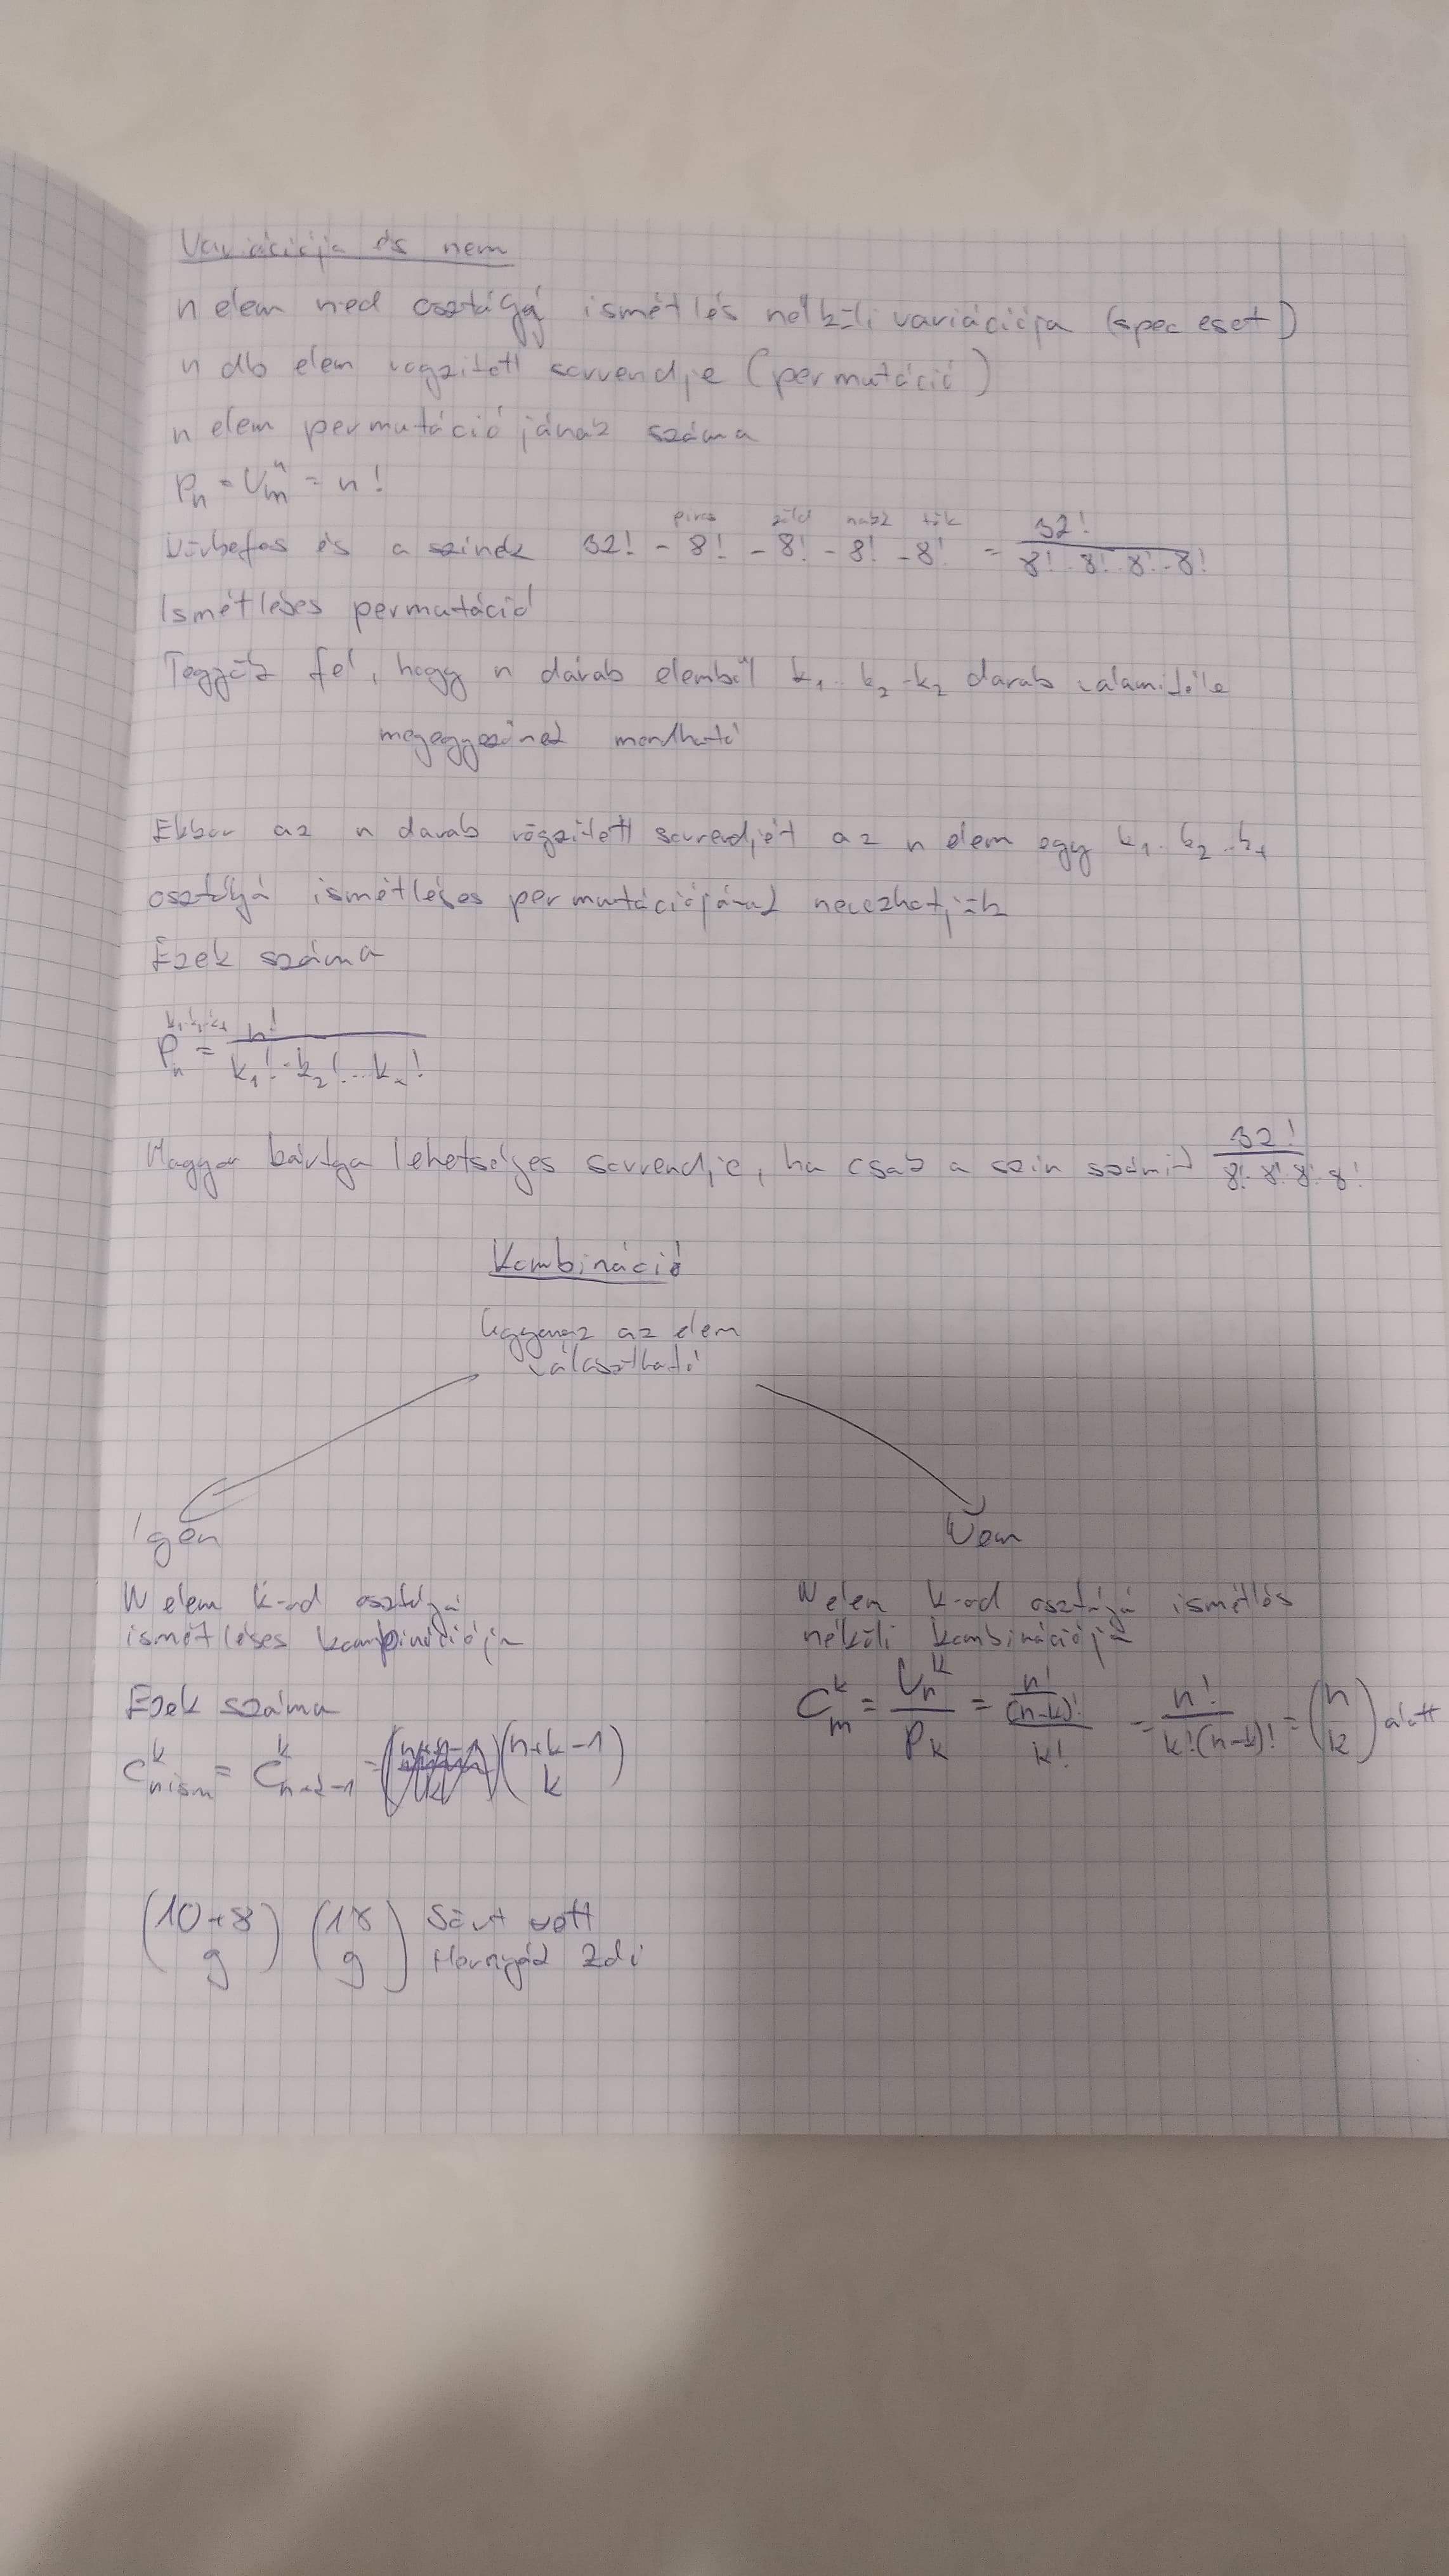 Variációja és nem
n elem n-ed osztályú ismétlés nélküli variációja (spec eset)
n db elem rögzített sorrendje (permutáció)
n elem permutációjának száma
Pn = Vm^n = n!
és a színek 32! - 8! - 8! - 8! - 8! = 32! / 8! 8! 8! - 8!
piros zöld makk tök
Ismétléses permutáció
Tegyük fel, hogy n darab elemből k1 .. k2 - k2 darab valamiféle
megegyezőnek mondható
Ekkor az n darab rögzített sorrendjét az n elem egy k1 .. k2 ..
osztályú ismétléses permutációjának nevezhetjük
Ezek száma
Pn = n! / k1! · k2! ... k !
Magyar kártya lehetséges sorrendje, ha csak a szín számít 32! / 8! · 8! 8! · 8!
Kombináció
Ugyanaz az elem
választható
Igen
Nem
N elem k-ad osztályú
ismétléses kombinációja
Ezek száma
C^k n ism = C^k n+k-1 = (n+k-1 k)
N elem k-ad osztályú ismétlés
nélküli kombinációja
C^k m = Vn^k / Pk = n! / (n-k)! / k! = n! / k!(n-k)! = (n k) alatt
(10+8 9) (18 9)